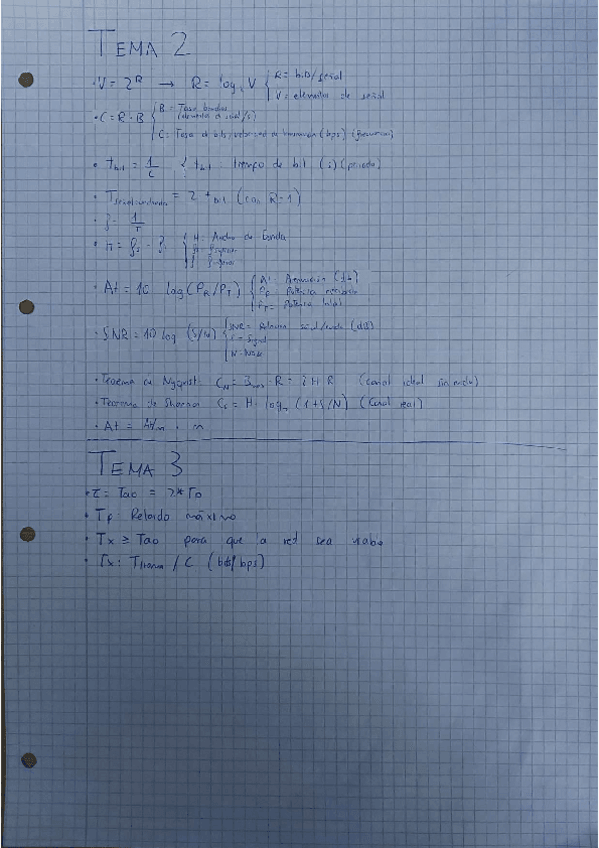 TEMA 2
· V = 2^R → R = log₂ V { R = bits/señal
V = elementos de señal
· C = R · B { B = Tasa baudios
(elementos de señal/s)
C = Tasa de bits, velocidad de transmisión (bps)
· t_bit = 1/C { t_bit: tiempo de bit (s) (periodo)
· T = 2 t_bit (con R=1)
· f = 1/T
· H = fs - fi { H: Ancho de banda
fs: f superior
fi: f inferior
· At = 10 log (P_R/P_T) { At: Atenuación (dB)
P_R = Potencia recibida
P_T =
· SNR = 10 log (S/N) { SNR = Relación señal/ruido (dB)
S = Signal
N = Noise
· Teorema de Nyquist: = B_max · R = 2 H R (canal ideal sin ruido)
· Teorema de C_s = H · log₂ (1+S/N) (Canal real)
· At = At/m · m
TEMA 3
· τ = Tao = 2*Tp
· Tp: Retardo máximo
· Tx ≥ Tao para que la red sea
· Tx: Ttrama / C (bits/bps)